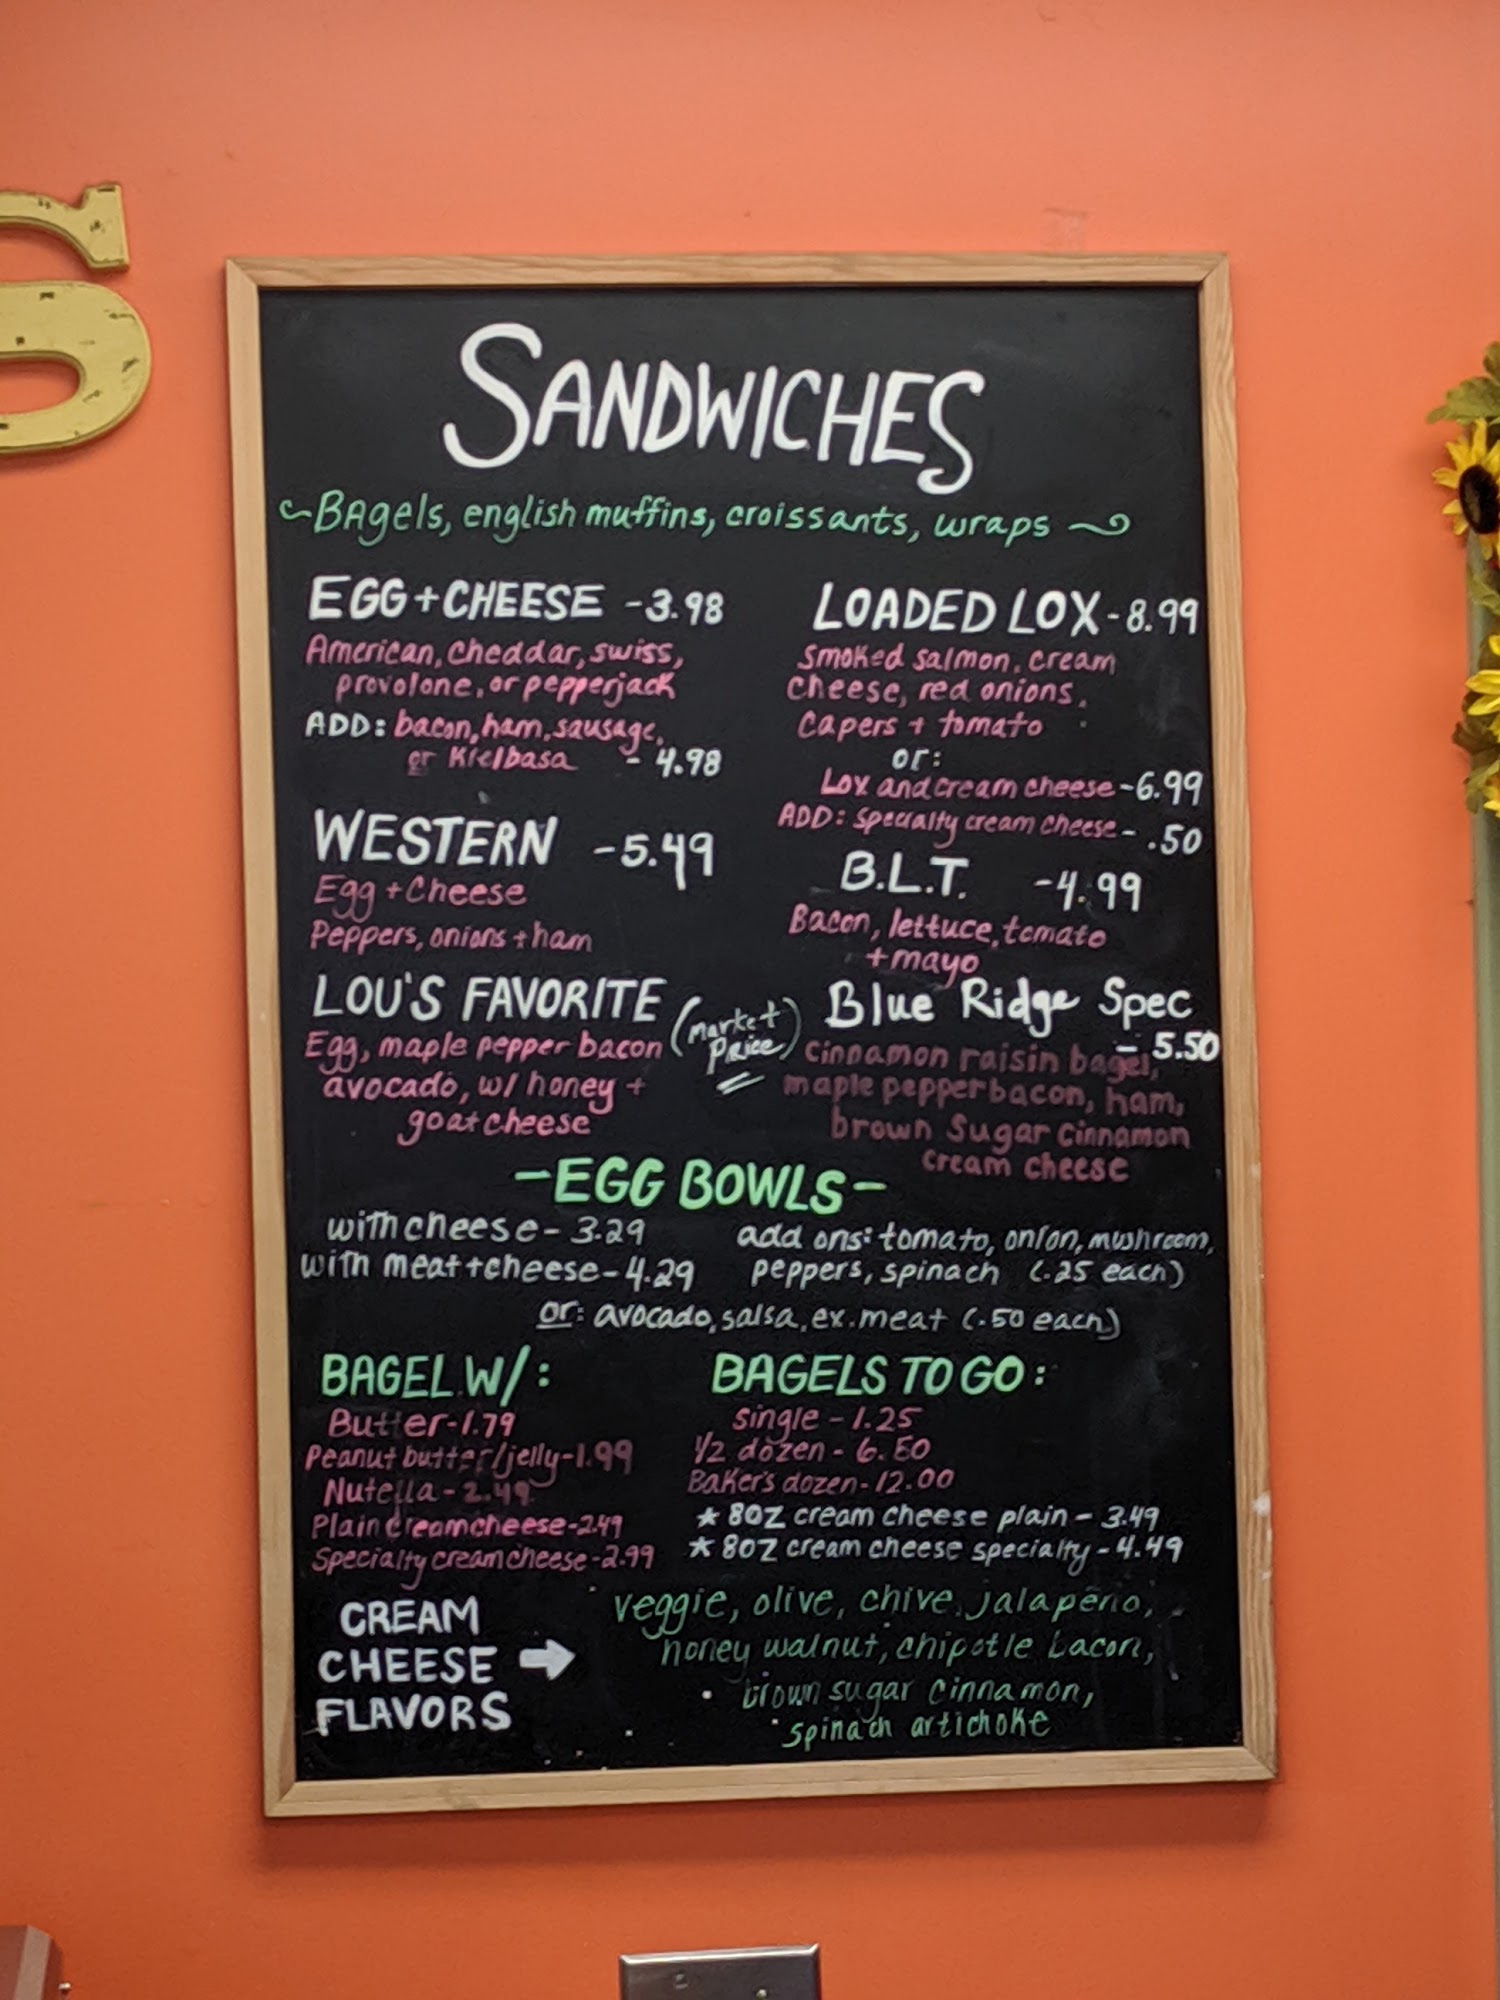 S
SANDWICHES
Bagels, english muffins, croissants, wraps
EGG + CHEESE - 3.98
American, cheddar, swiss,
provolone, or pepperjack
ADD: bacon, ham, sausage,
or Kielbasa - 4.98
WESTERN - 5.49
Egg + Cheese
Peppers, onions + ham
LOU'S FAVORITE (market price)
Egg, maple pepper bacon
avocado, w/ honey +
goat cheese
LOADED LOX - 8.99
Smoked salmon, cream
cheese, red onions,
Capers + tomato
or:
Lox and cream cheese - 6.99
ADD: specialty cream cheese - .50
B.L.T. - 4.99
Bacon, lettuce, tomato
+ mayo
Blue Ridge Spec
- 5.50
cinnamon raisin bagel,
maple pepper bacon, ham,
brown sugar cinnamon
cream cheese
- EGG BOWLS -
with cheese - 3.29
with meat + cheese - 4.29
add ons: tomato, onion, mushroom,
peppers, spinach (.25 each)
or: avocado, salsa, ex. meat (.50 each)
BAGEL W/:
Butter - 1.79
Peanut butter/jelly - 1.99
Nutella - 2.49
Plain creamcheese - 2.49
Specialty creamcheese - 2.99
BAGELS TO GO:
single - 1.25
1/2 dozen - 6.50
Baker's dozen - 12.00
★ 8oz cream cheese plain - 3.49
★ 8oz cream cheese specialty - 4.49
CREAM
CHEESE →
FLAVORS
veggie, olive, chive, jalapeño,
honey walnut, chipotle bacon,
brown sugar cinnamon,
spinach artichoke